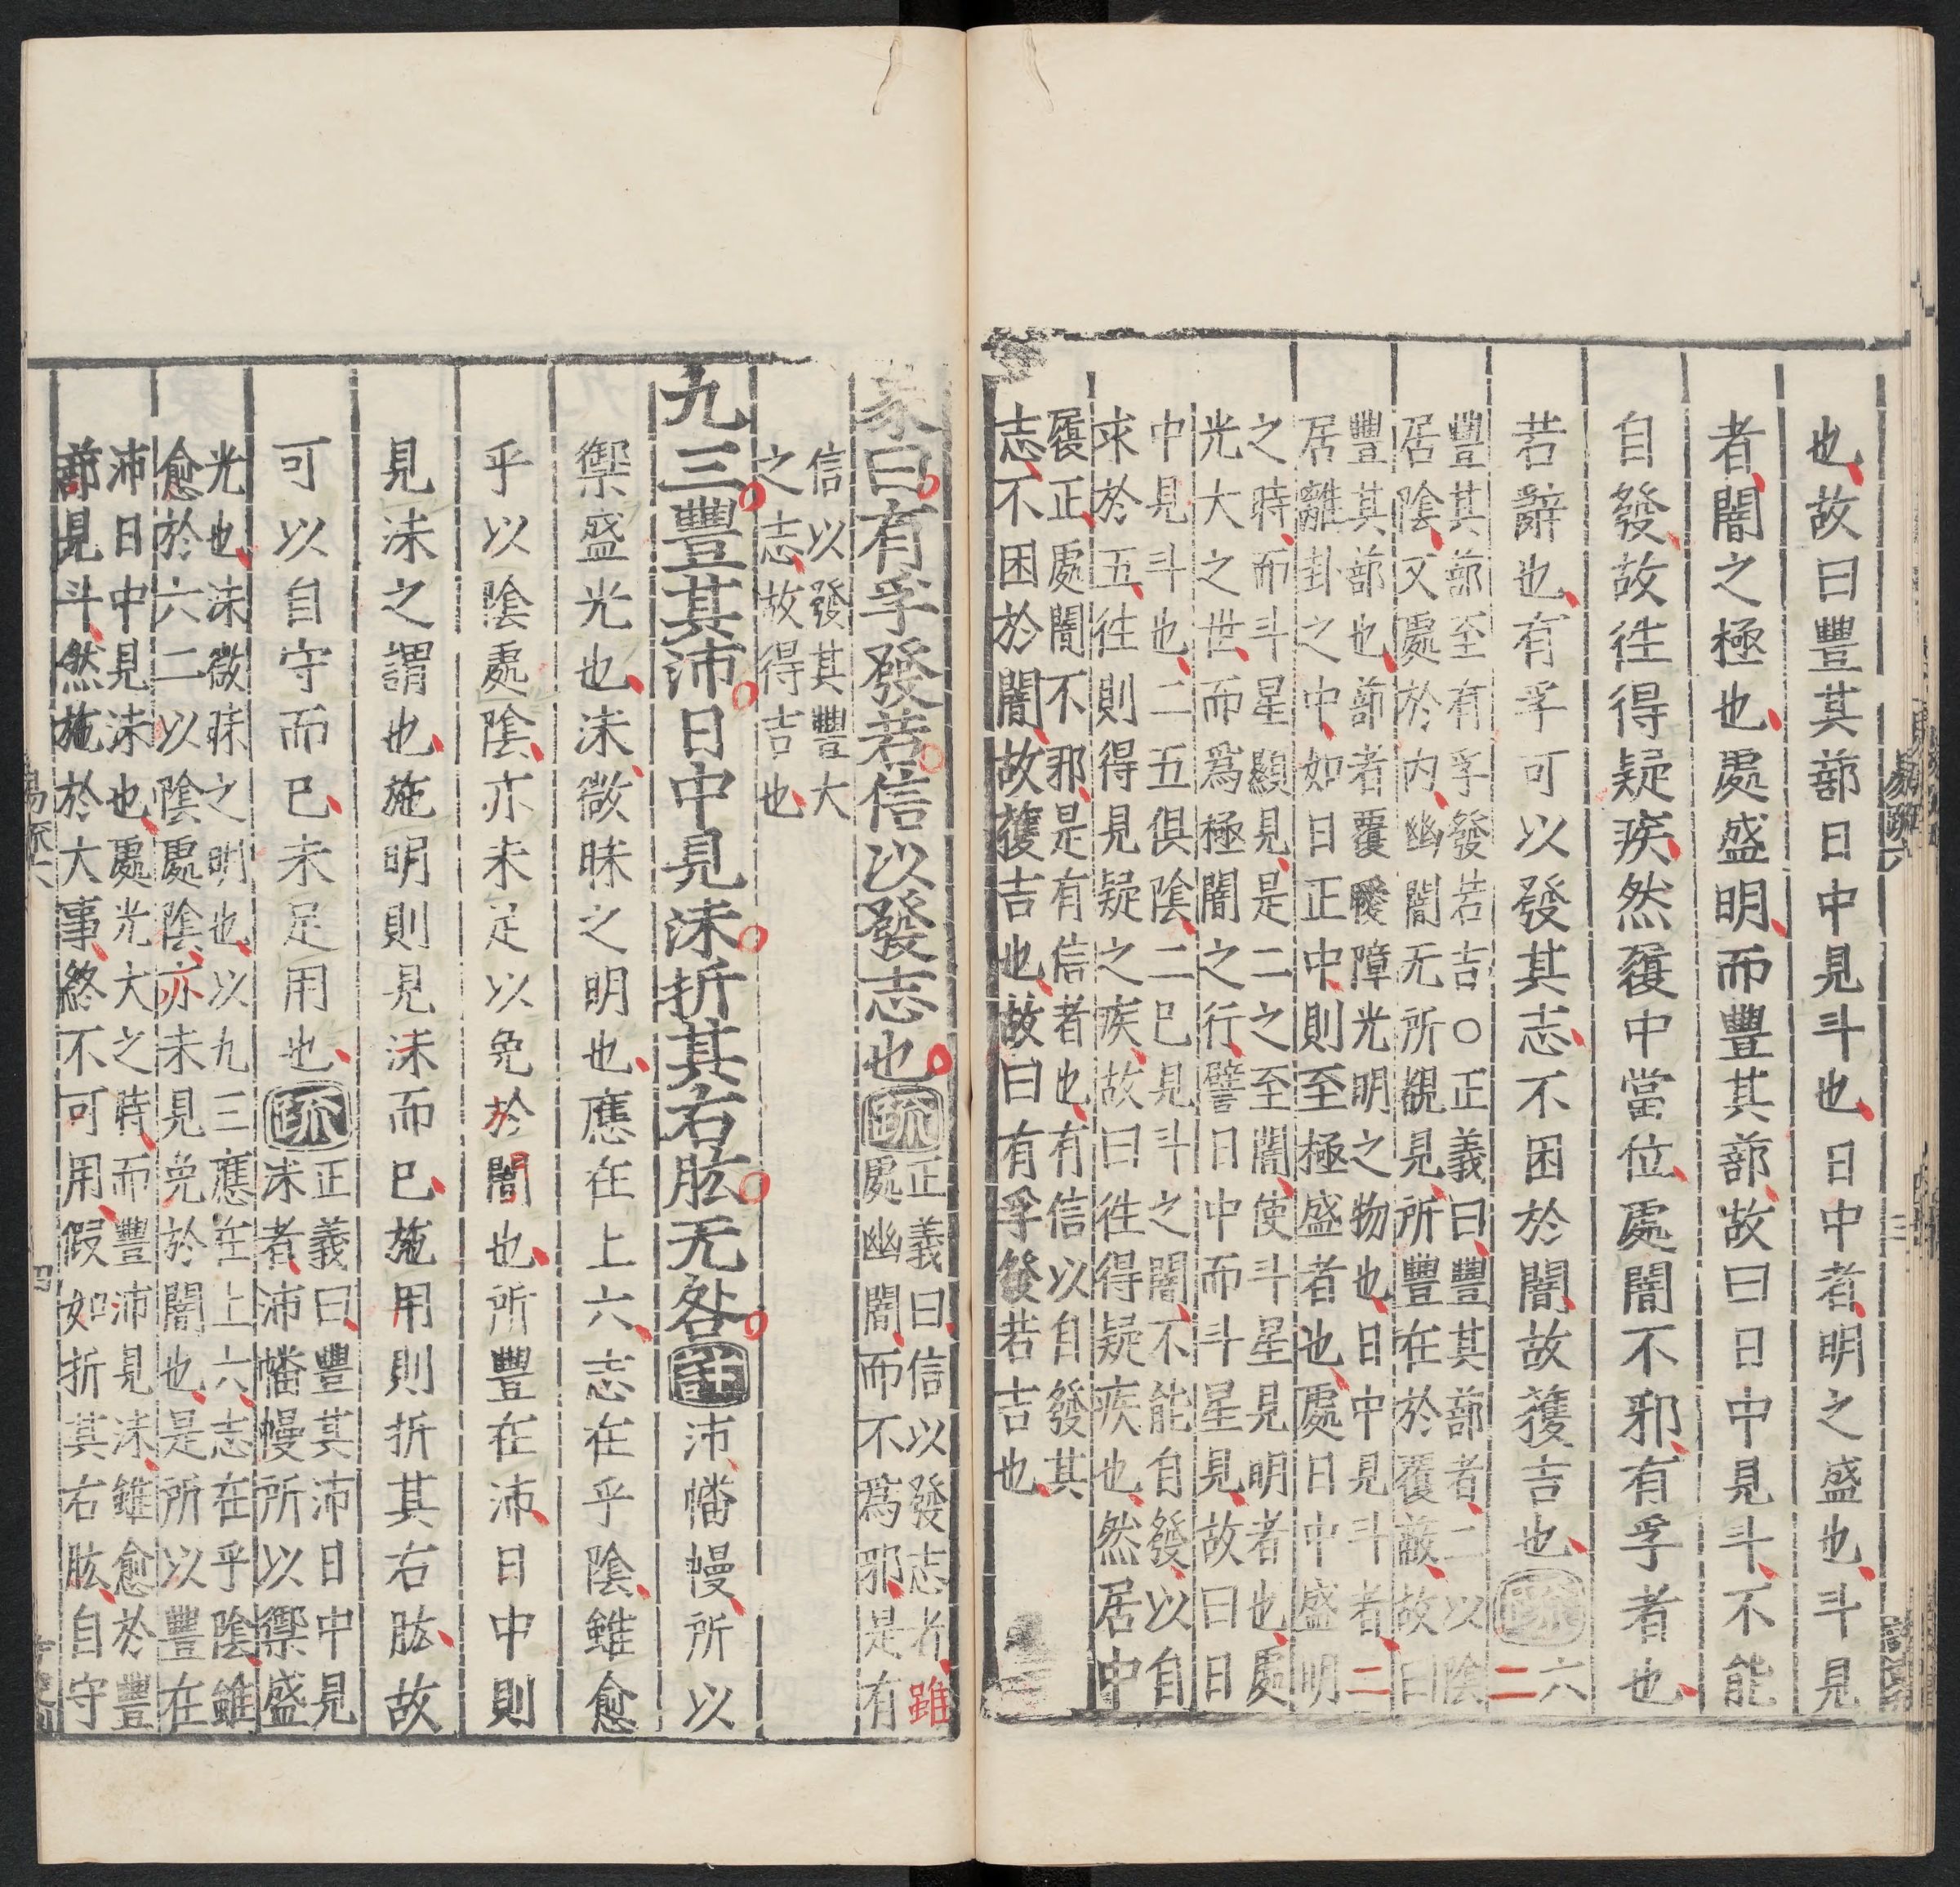 也故曰豐其蔀日中見斗也日中者明之盛也斗見
者闇之極也處盛明而豐其蔀故曰日中見斗不能
自發故往得疑疾然履中當位處闇不邪有孚者也
若辭也有孚可以發其志不困於闇故獲吉也疏六二
豐其蔀至有孚發若吉○正義曰豐其蔀者二以陰
居陰又處於內幽闇无所覩見所豐在於覆蔽故曰
豐其蔀也蔀者覆曖障光明之物也日中見斗者二
居離卦之中如日正中則至極盛者也處日中盛明
之時而斗星顯見是二之至闇使斗星見明者也處
光大之世而爲極闇之行譬日中而斗星見故曰日
中見斗也二五俱陰二已見斗之闇不能自發以自
求於五往則得見疑之疾故曰往得疑疾也然居中
履正處闇不邪是有信者也有信以自發其
志不困於闇故獲吉也故曰有孚發若吉也
象曰有孚發若信以發志也疏
正義曰信以發志者雖
處幽闇而不爲邪是有
信以發其豐大
之志故得吉也
九三豐其沛日中見沬折其右肱无咎註沛幡幔所以
禦盛光也沬微昧之明也應在上六志在乎陰雖愈
乎以陰處陰亦未足以免於闇也所豐在沛日中則
見沬之謂也施明則見沬而已施用則折其右肱故
可以自守而已未足用也疏
正義曰豐其沛日中見
沬者沛幡幔所以禦盛
光也沬微昧之明也以九三應在上六志在乎陰雖
愈於六二以陰處陰亦未見免於闇也是所以豐在
沛日中見沬也處光大之時而豐沛見沬雖愈於豐
蔀見斗然施於大事終不可用假如折其右肱自守
易疏六
四